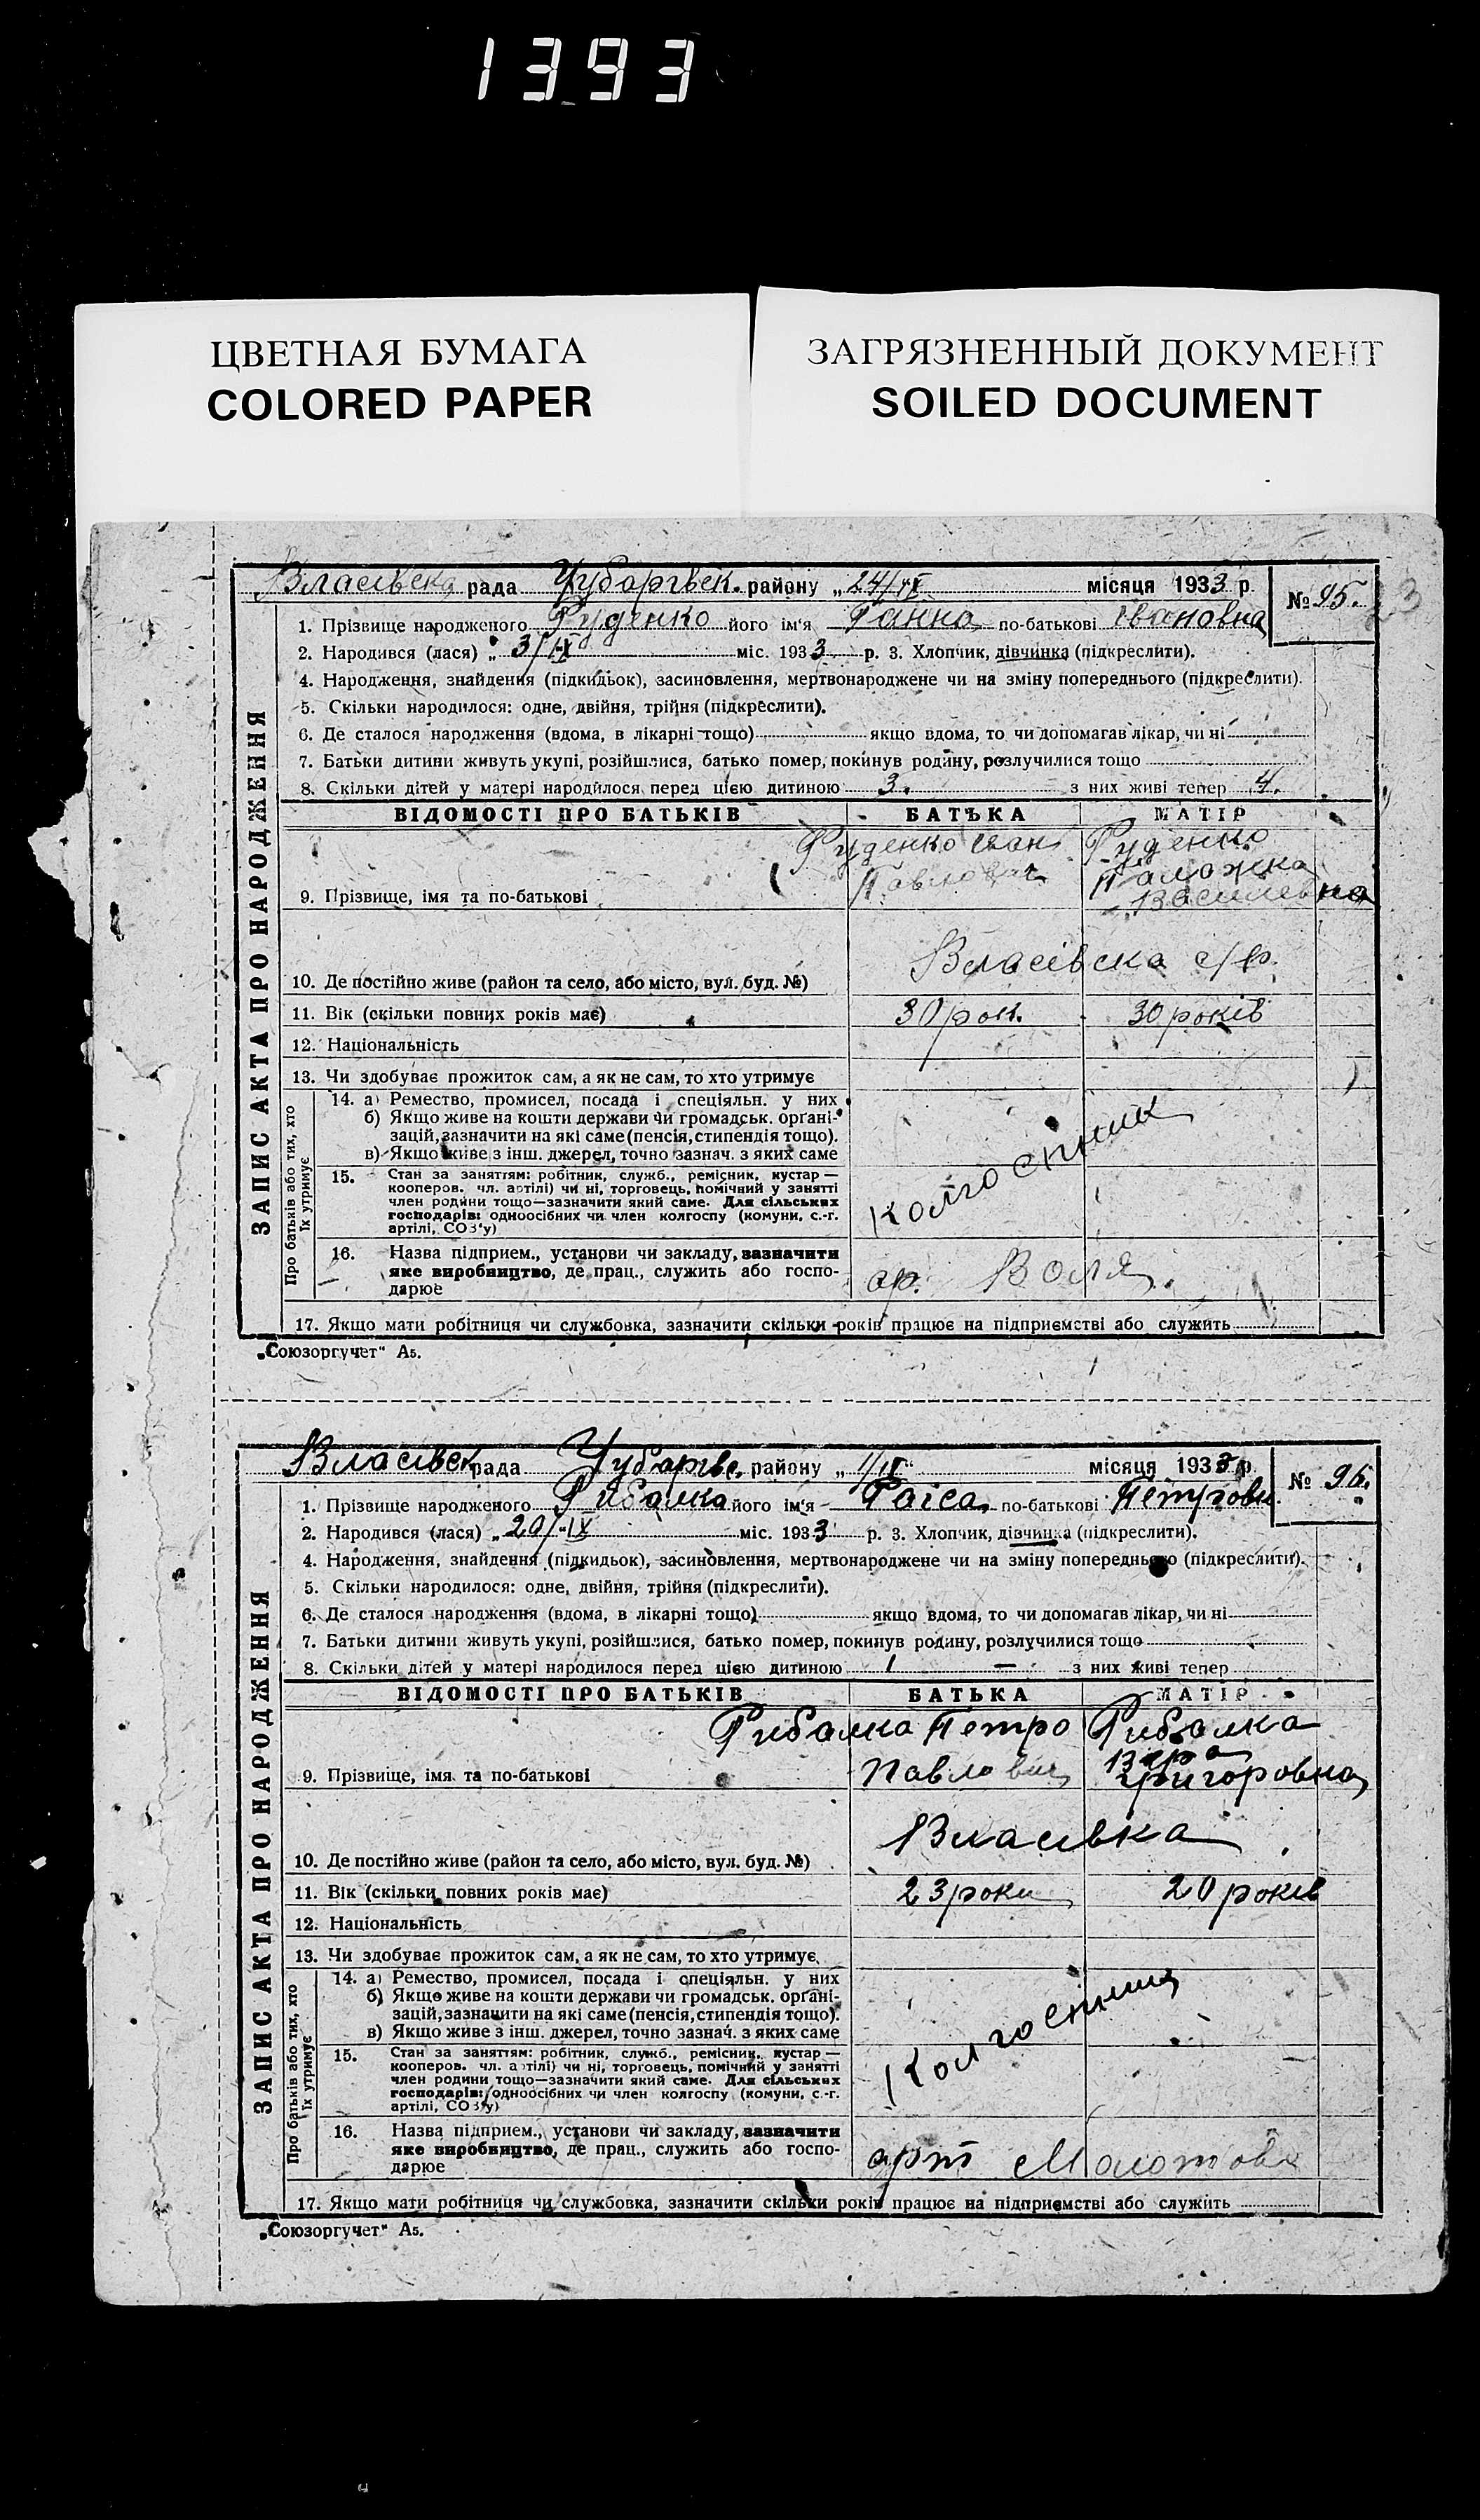 1393
ЦВЕТНАЯ БУМАГА
COLORED PAPER
ЗАГРЯЗНЕННЫЙ ДОКУМЕНТ
SOILED DOCUMENT
Власівська рада Чубарівск. району „24/IX місяця 1933 р. № 95.
ЗАПИС АКТА ПРО НАРОДЖЕННЯ
1. Прізвище народженого Руденко його ім'я Ганна по-батькові Івановна
2. Народився (лася) „3/IX міс. 1933 р. 3. Хлопчик, дівчинка (підкреслити).
4. Народження, знайдення (підкидьок), засиновлення, мертвонароджене чи на зміну попереднього (підкреслити).
5. Скільки народилося: одне, двійня, трійня (підкреслити).
6. Де сталося народження (вдома, в лікарні тощо) якщо вдома, то чи допомагав лікар, чи ні
7. Батьки дитини живуть укупі, розійшлися, батько помер, покинув родину, розлучилися тощо
8. Скільки дітей у матері народилося перед цією дитиною 3. з них живі тепер 4.
ВІДОМОСТІ ПРО БАТЬКІВ БАТЬКА МАТІР
Руденко Іван Руденко
Павлович Паложка
9. Прізвище, імя та по-батькові Василевна
Власівска с/р.
10. Де постійно живе (район та село, або місто, вул. буд. №)
11. Вік (скільки повних років має) 30 рок. 30 років
12. Національність
13. Чи здобуває прожиток сам, а як не сам, то хто утримує
Про батьків або тих, хто їх утримує
14. а) Ремество, промисел, посада і спеціяльн. у них
б) Якщо живе на кошти держави чи громадськ. органі-
зацій, зазначити на які саме (пенсія, стипендія тощо).
в) Якщо живе з інш. джерел, точно зазнач. з яких саме
колгоспник
15. Стан за заняттям: робітник, служб., ремісник, кустар —
кооперов. чл. артілі) чи ні, торговець, помічний у занятті
член родини тощо—зазначити який саме. Для сільських
господарів: одноосібних чи член колгоспу (комуни, с.-г.
артілі, СОЗ'у)
16. Назва підприєм., установи чи закладу, зазначити
яке виробництво, де прац., служить або госпо-
дарює
ар. Воля.
17. Якщо мати робітниця чи службовка, зазначити скільки років працює на підприємстві або служить
„Союзоргучет" А5.
Власівск рада Чубарівс. району „11/IX місяця 1933 р. № 96.
ЗАПИС АКТА ПРО НАРОДЖЕННЯ
1. Прізвище народженого Рибалка його ім'я Раїса по-батькові Петровн
2. Народився (лася) „20/IX міс. 1933 р. 3. Хлопчик, дівчинка (підкреслити).
4. Народження, знайдення (підкидьок), засиновлення, мертвонароджене чи на зміну попереднього (підкреслити).
5. Скільки народилося: одне, двійня, трійня (підкреслити).
6. Де сталося народження (вдома, в лікарні тощо) якщо вдома, то чи допомагав лікар, чи ні
7. Батьки дитини живуть укупі, розійшлися, батько помер, покинув родину, розлучилися тощо
8. Скільки дітей у матері народилося перед цією дитиною 1 — з них живі тепер
ВІДОМОСТІ ПРО БАТЬКІВ БАТЬКА МАТІР
Рибалка Петро Рибалка
Павлович Вера
9. Прізвище, імя та по-батькові Григоровна
Власівка
10. Де постійно живе (район та село, або місто, вул. буд. №)
11. Вік (скільки повних років має) 23 роки 20 років
12. Національність
13. Чи здобуває прожиток сам, а як не сам, то хто утримує
Про батьків або тих, хто їх утримує
14. а) Ремество, промисел, посада і спеціяльн. у них
б) Якщо живе на кошти держави чи громадськ. органі-
зацій, зазначити на які саме (пенсія, стипендія тощо).
в) Якщо живе з інш. джерел, точно зазнач. з яких саме
15. Стан за заняттям: робітник, служб., ремісник, кустар —
кооперов. чл. артілі) чи ні, торговець, помічний у занятті
член родини тощо—зазначити який саме. Для сільських
господарів: одноосібних чи член колгоспу (комуни, с.-г.
артілі, СОЗ'у)
16. Назва підприєм., установи чи закладу, зазначити
яке виробництво, де прац., служить або госпо-
дарює
арт Молотова
17. Якщо мати робітниця чи службовка, зазначити скільки років працює на підприємстві або служить
„Союзоргучет" А5.